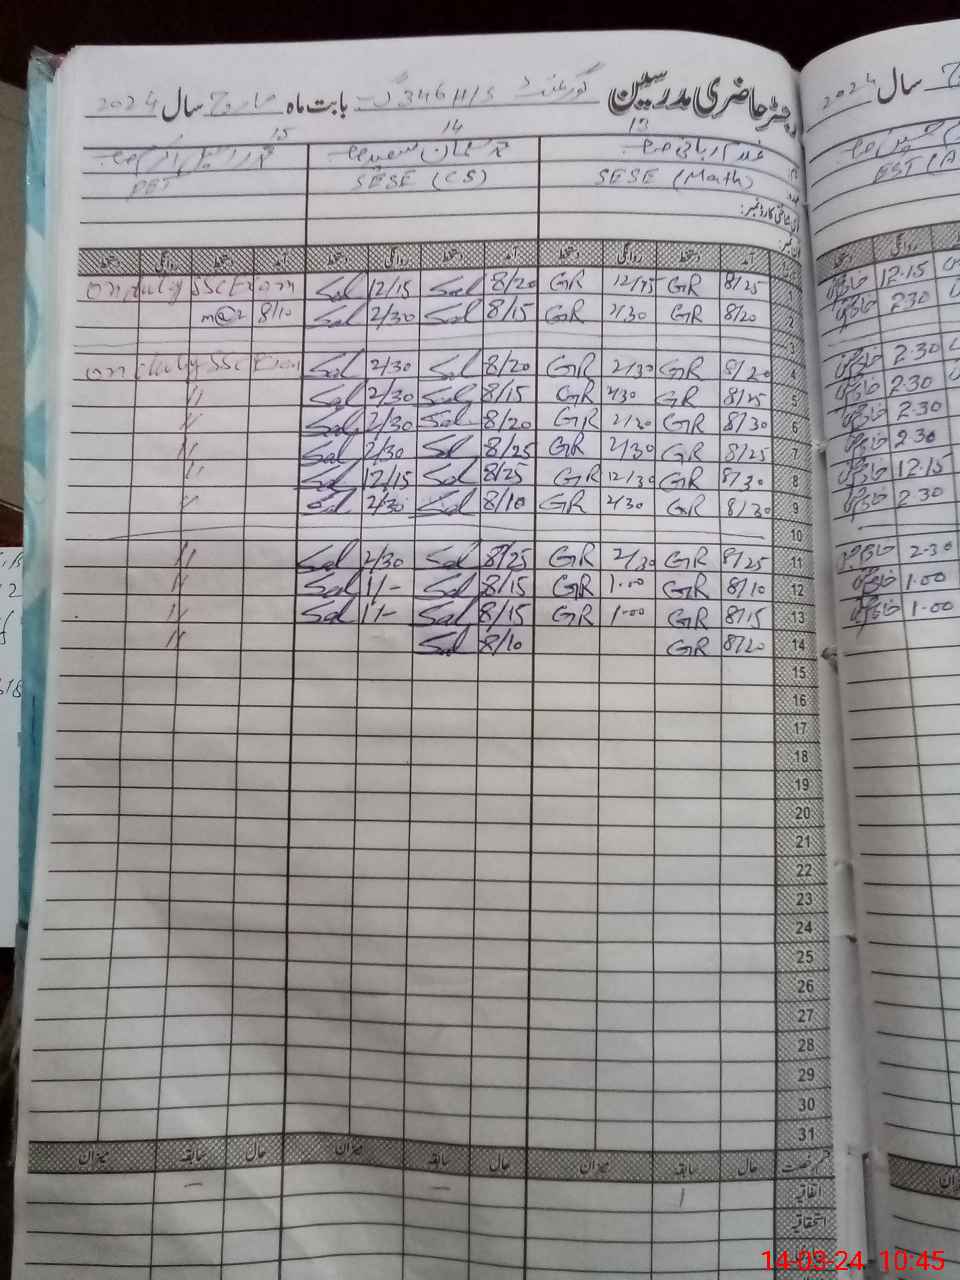 رجسٹر حاضری مدرسین گورنمنٹ 346 H/S بابت ماہ مارچ سال 2024
سال 2024
13 14 15
SESE (Math) SESE (CS) PET
EST (A
آمد دستخط روانگی دستخط آمد دستخط روانگی دستخط آمد دستخط روانگی دستخط
1 8/25 GR GR 8/20 Sal 12/15 Sal on duty SSC Exam
2 8/20 GR 2/30 GR 8/15 Sal 2/30 Sal 8/10
3
4 8/20 GR 2/30 GR 8/20 Sal 2/30 Sal on duty SSC Exam
5 8/25 GR 2/30 GR 8/15 Sal 2/30 Sal //
6 8/30 GR 2/30 GR 8/20 Sal 2/30 Sal //
7 8/25 GR 2/30 GR 8/25 Sal 2/30 Sal //
8 8/30 GR 12/30 GR 8/25 Sal 12/15 Sal //
9 8/30 GR 2/30 GR 8/10 Sal 2/30 Sal //
10
11 8/25 GR 2/30 GR 8/25 Sal 2/30 Sal //
12 8/10 GR 1.00 GR 8/15 Sal 1/- Sal //
13 8/15 GR 1.00 GR 8/15 Sal 1/- Sal //
14 8/20 GR 8/10 Sal //
15
16
17
18
19
20
21
22
23
24
25
26
27
28
29
30
31
حال سابقہ میزان حال سابقہ میزان حال سابقہ میزان
اتفاقیہ 1 – –
استحقاقیہ
روانگی دستخط
12.15
2.30
2.30
2.30
2.30
2.30
12.15
2.30
2.30
1.00
1.00
14-03-24 10:45